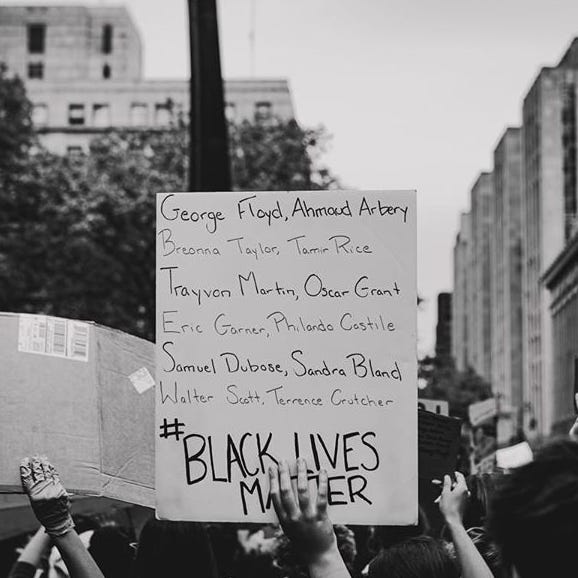 George Floyd, Ahmaud Arbery
Breonna Taylor, Tamir Rice
Trayvon Martin, Oscar Grant
Eric Garner, Philando Castile
Samuel Dubose, Sandra Bland
Walter Scott, Terrence Crutcher
#BLACK LIVES
MATTER